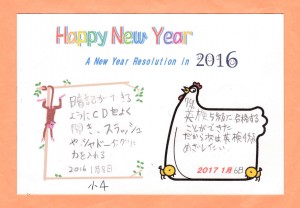 Happy New Year
A New Year Resolution in 2016
暗記ができる
ようにCDをよく
聞き、スラッシュ
やシャドーイングに
力を入れる
2016 1月8日
小4
英検5級に合格する
ことができた
だから次は英検4級
めざしたい。
2017 1月6日